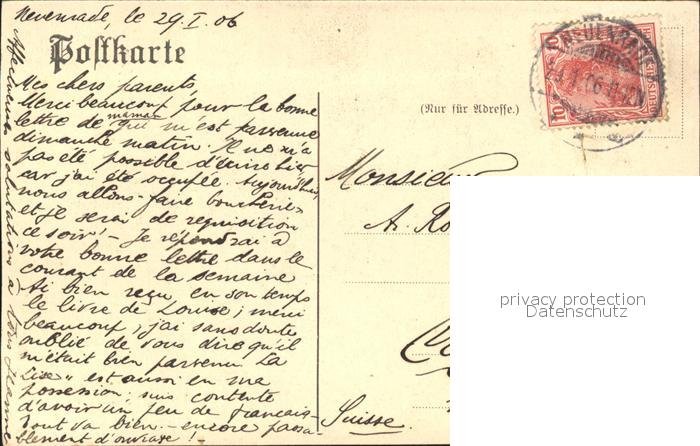 Neuenrade, le 29.I.06
Postkarte
Mes chers parents,
Merci beaucoup pour la bonne
lettre de maman qui m'est parvenue
dimanche matin. Il ne m'a
pas été possible d'écrire hier
car j'ai été occupée. Aujourd'hui
nous allons faire boucherie
et je serai de requisition
ce soir! - Je répondrai à
votre bonne lettre dans le
courant de la semaine
Ai bien reçu en son temps
le livre de Louise; merci
beaucoup, j'ai sans doute
oublié de vous dire qu'il
m'était bien parvenu. La
"Lise" est aussi en ma
possession; suis contente
d'avoir un peu de français -
Tout va bien - encore passa-
blement d'ouvrage!
Affectueuses salutations à tous Jeanne
(Nur für Adresse.)
NEUENRADE
29.1.06
DEUTSCHES REICH
10
10
Monsieur
A. Ro
Suisse.
privacy protection
Datenschutz